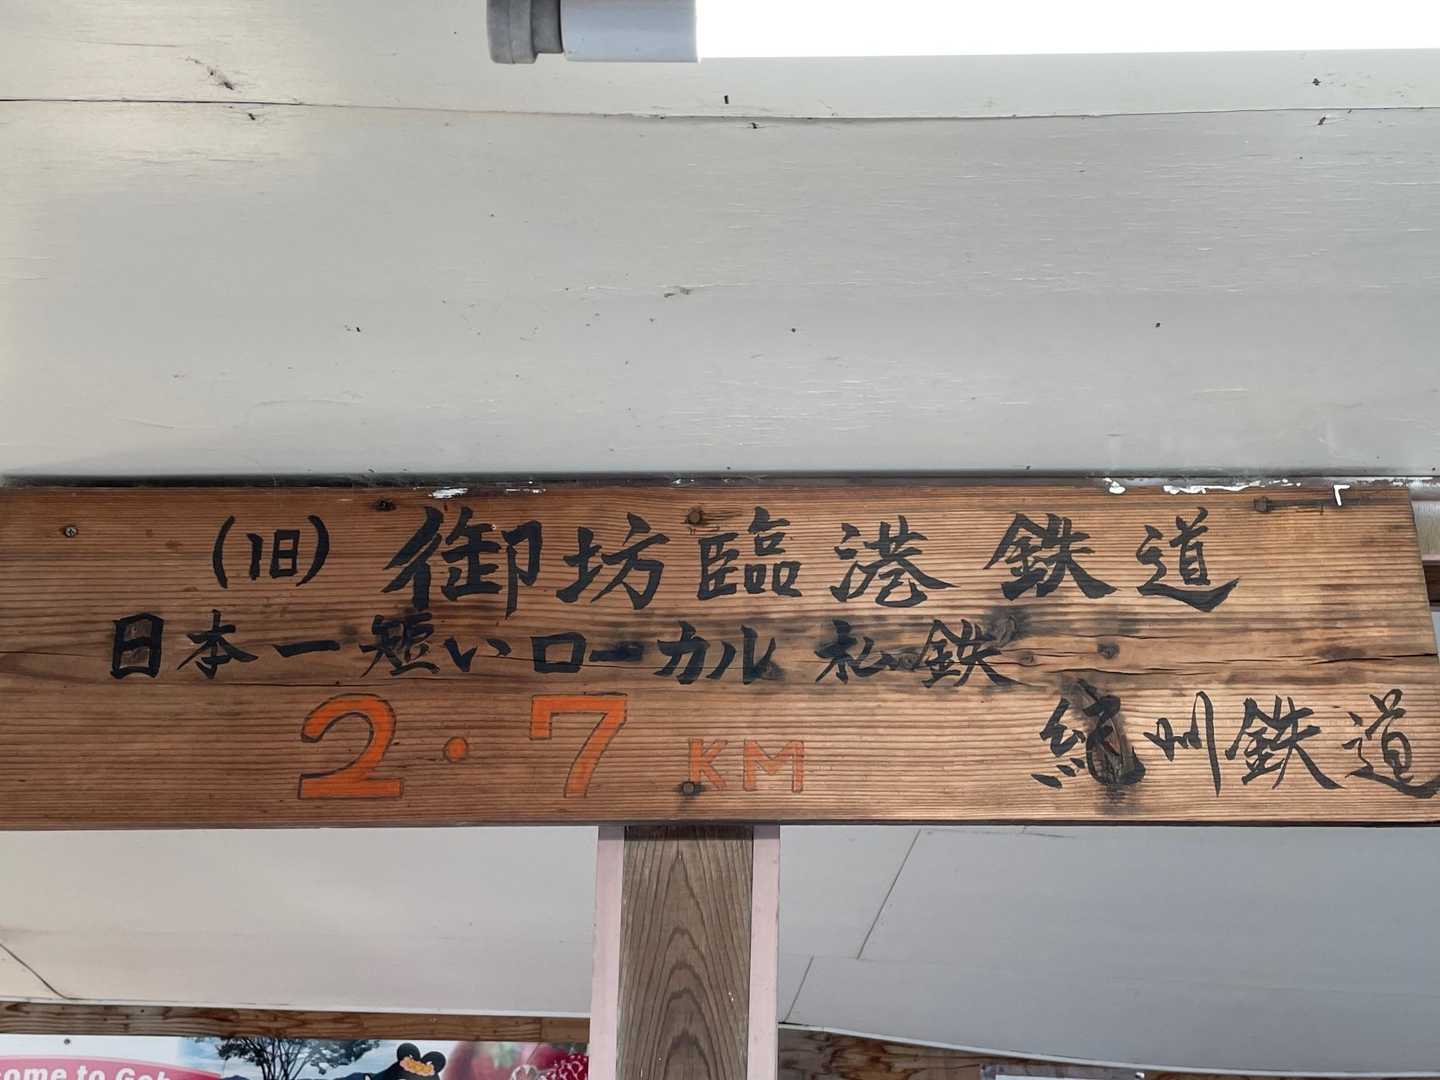 (旧)御坊臨港鉄道
日本一短いローカル私鉄
2・7KM
紀州鉄道
ome to Gob